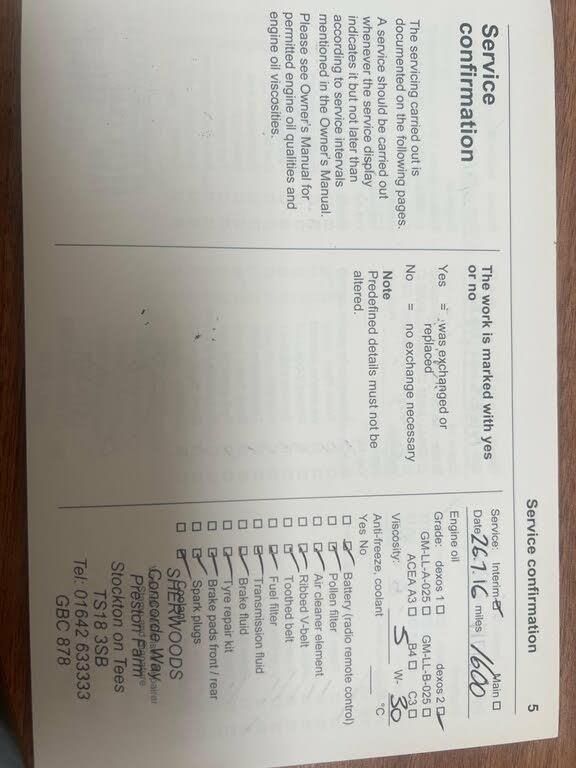 Service
confirmation
The servicing carried out is
documented on the following pages.
A service should be carried out
whenever the service display
indicates it but not later than
according to service intervals
mentioned in the Owner's Manual.
Please see Owner's Manual for
permitted engine oil qualities and
engine oil viscosities.
The work is marked with yes
or no
Yes = was exchanged or
replaced
No = no exchange necessary
Note
Predefined details must not be
altered.
Service confirmation 5
Service: Interim Main
Date 26.7.16 miles 1600
Engine oil
Grade: dexos 1 dexos 2
GM-LL-A-025 GM-LL-B-025
ACEA A3 B4 C3
Viscosity: 5 W- 30
Anti-freeze, coolant °C
Yes No
Battery (radio remote control)
Pollen filter
Air cleaner element
Ribbed V-belt
Toothed belt
Fuel filter
Transmission fluid
Brake fluid
Tyre repair kit
Brake pads front / rear
Spark plugs
SHERWOODS
Concorde Way
Preston Farm
Stockton on Tees
TS18 3SB
Tel: 01642 633333
GBC 878